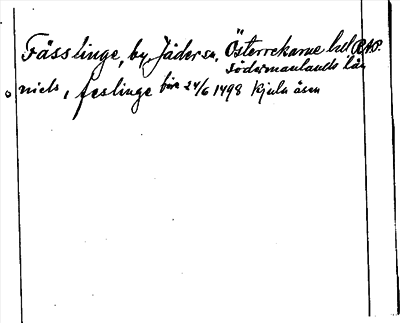 Fässlinge, by, Jäder sn, Österrekarne hd RAP.
Södermanlands län
niels, feslinge brev 24/6 1498 Kjula åsen